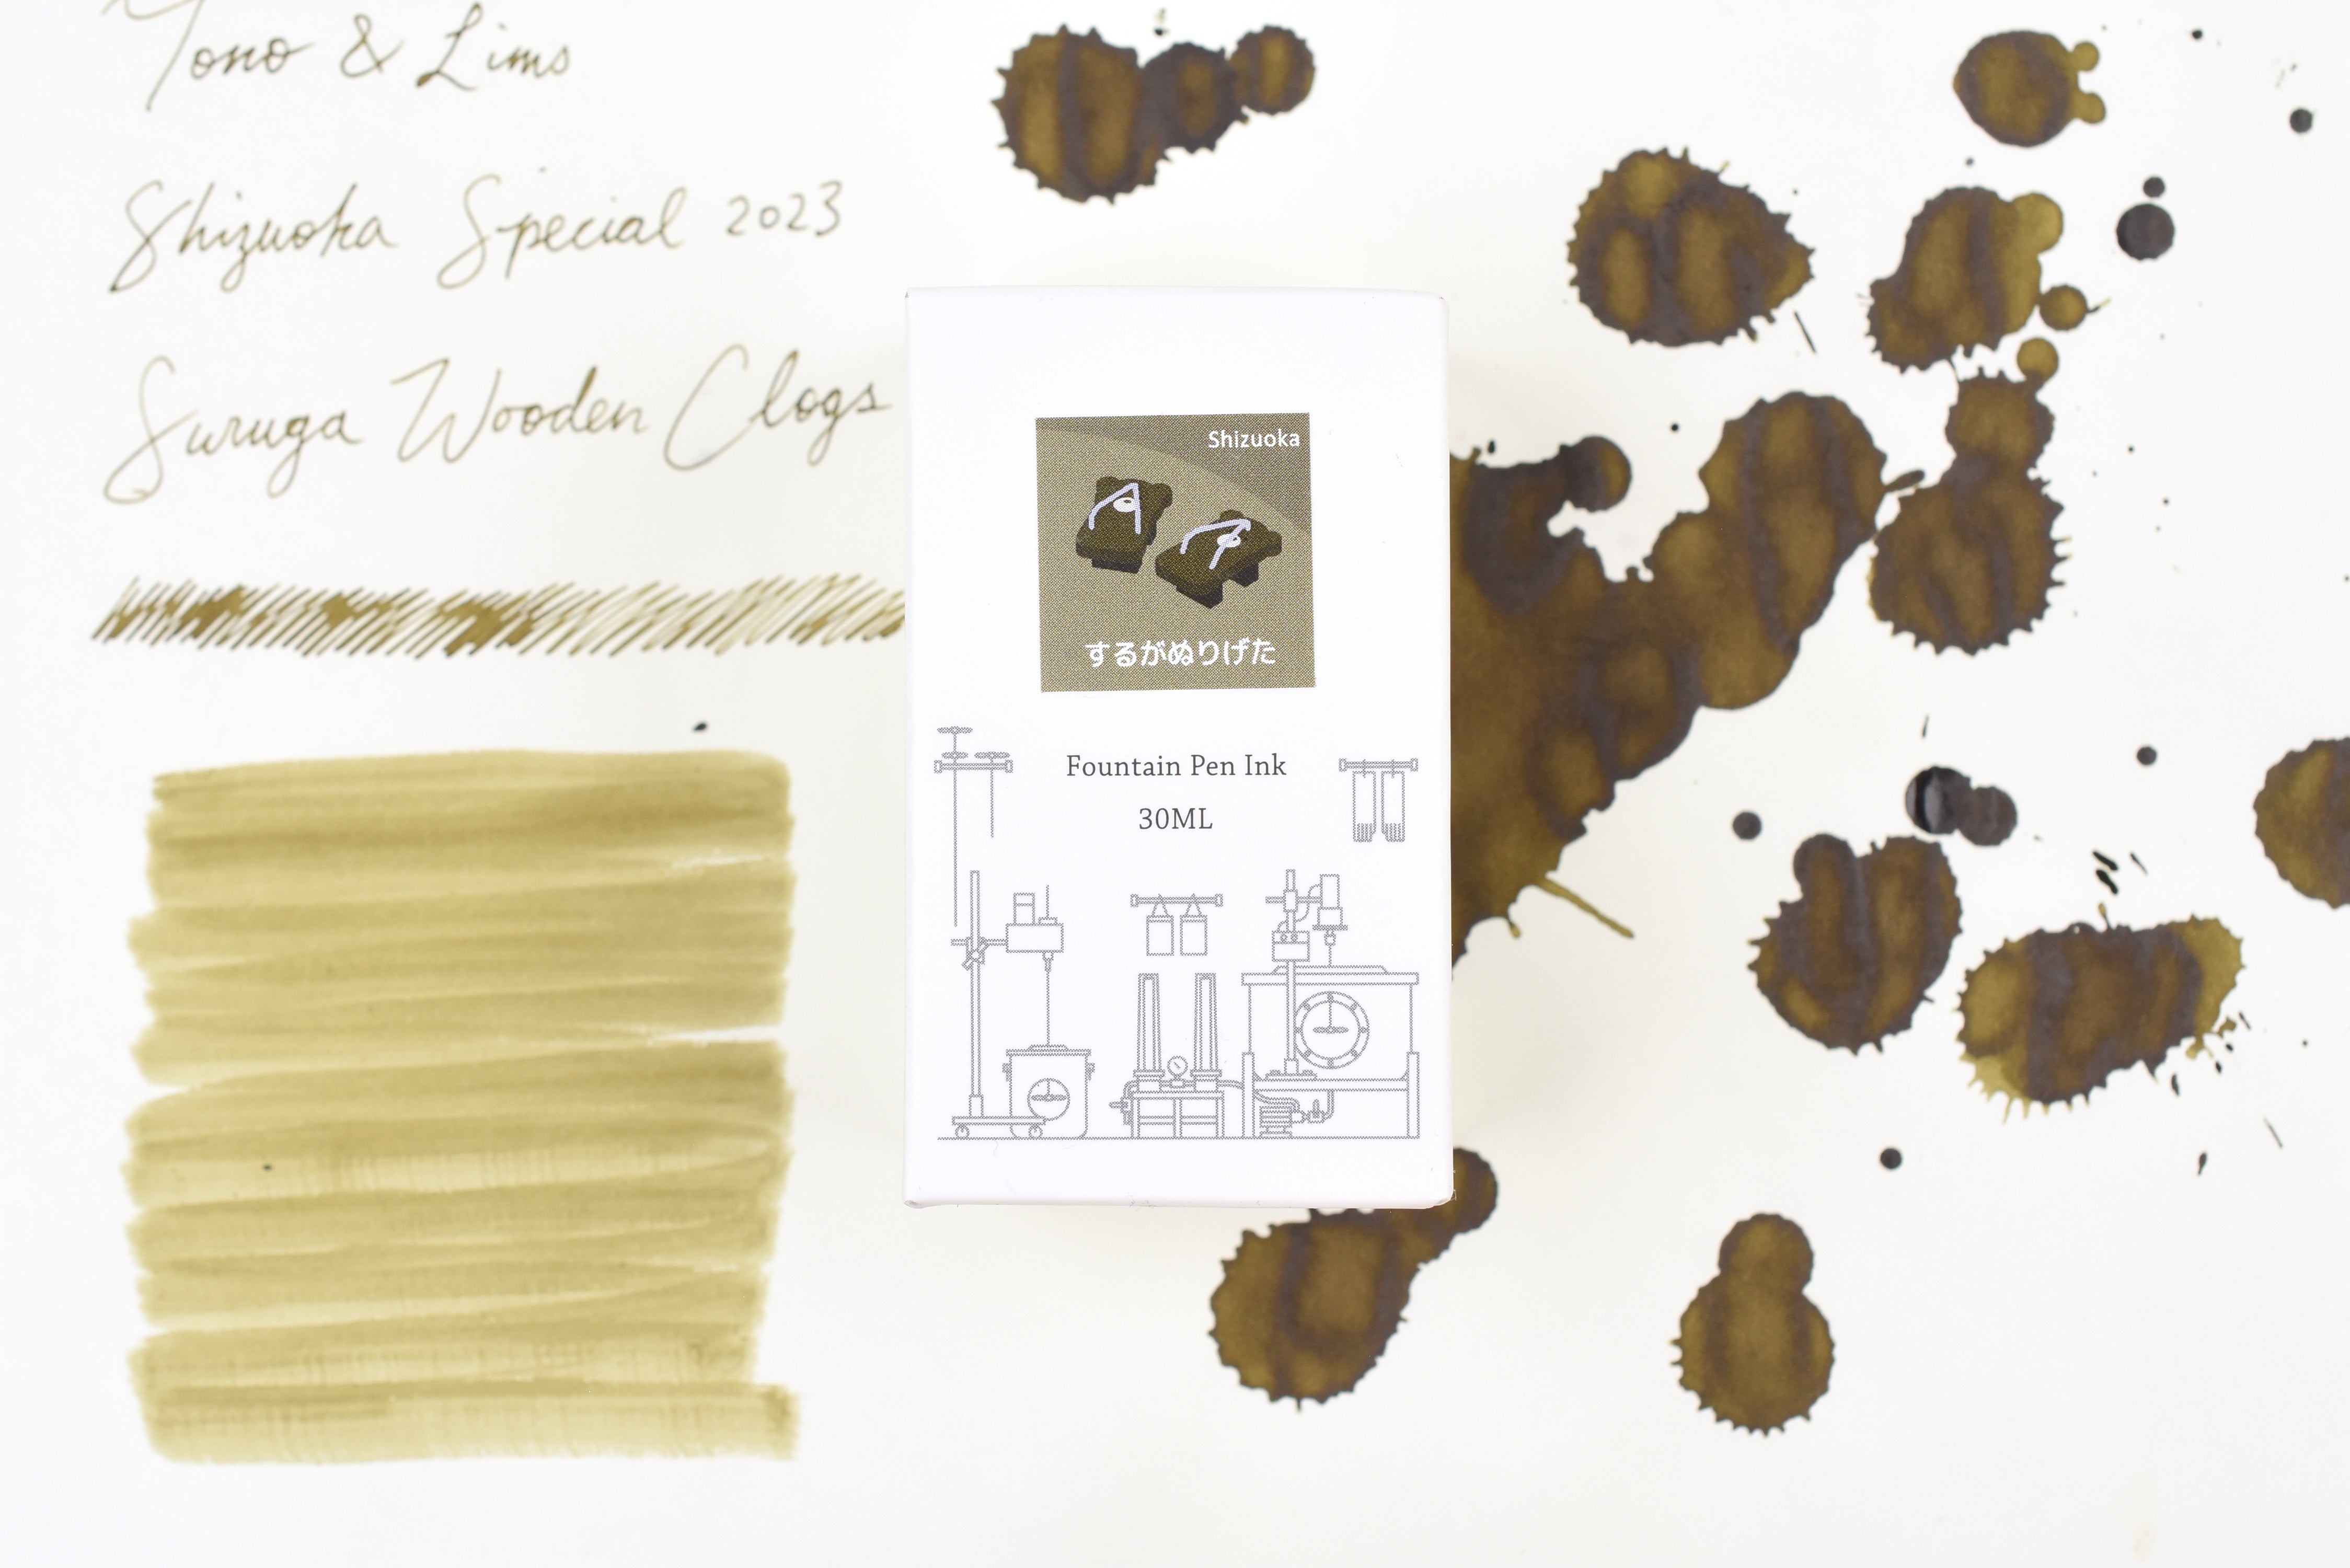 Tono & Lims
Shizuoka Special 2023
Suruga Wooden Clogs
Shizuoka
するがぬりげた
Fountain Pen Ink
30ML